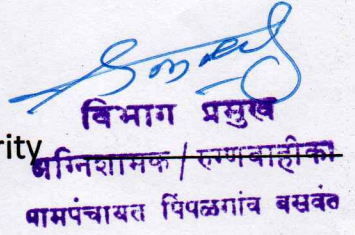 विभाग प्रमुख
rity
अग्निशामक / रुग्णवाहीका
ग्रामपंचायत पिंपळगांव बसवंत